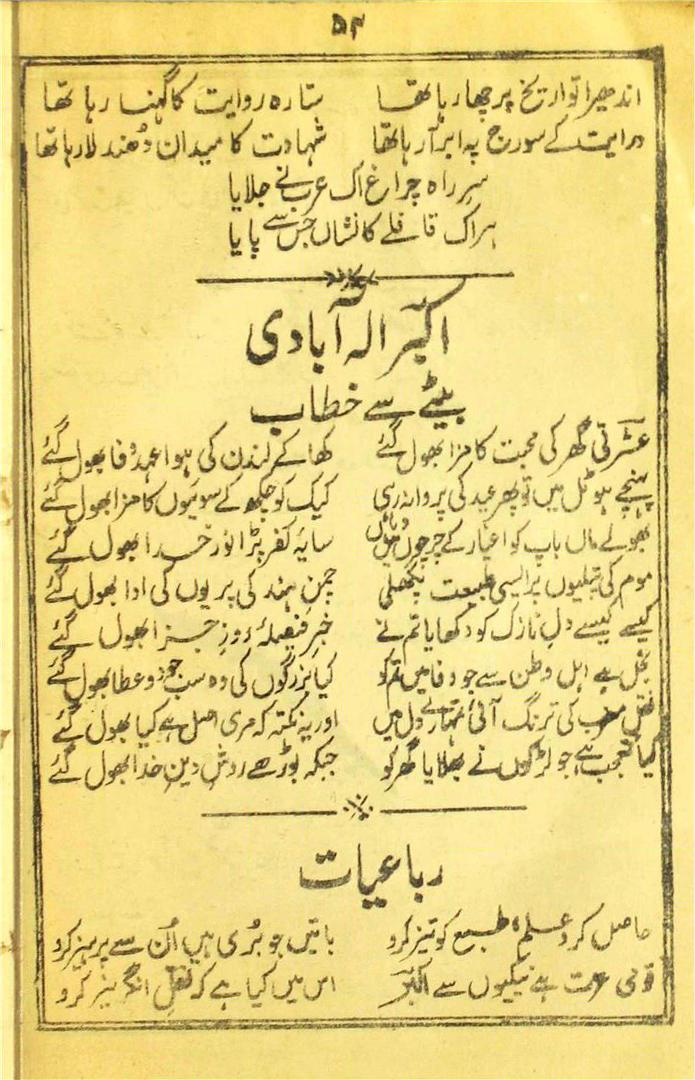 ۵۴
اندھیرا تواریخ پر چھا رہا تھا ستارہ روایت کا گہنا رہا تھا
درایت کے سورج پہ ابر آ رہا تھا شہادت کا میدان دُھندلا رہا تھا
سرِ راہ چراغ اک عرب نے جلایا
ہر اک قافلے کا نشاں جس سے پایا
اکبر الہ آبادی
بیٹے سے خطاب
عشرتی گھر کی محبت کا مزا بھول گئے کھا کے لندن کی ہوا عہدِ وفا بھول گئے
پہنچے ہوٹل میں تو پھر عید کی پروا نہ رہی کیک کو چکھ کے سویوں کا مزا بھول گئے
بھولے ماں باپ کو اغیار کے چرچوں میں وہاں سایۂ کفر پڑا نورِ خدا بھول گئے
موم کی پتلیوں پر ایسی طبیعت پگھلی چمنِ ہند کی پریوں کی ادا بھول گئے
کیسے کیسے دلِ نازک کو دکھایا تم نے خبرِ فیصلۂ روزِ جزا بھول گئے
بخل ہے اہل وطن سے جو وفا میں تم کو کیا بزرگوں کی وہ سب جود و عطا بھول گئے
نقل مغرب کی ترنگ آئی تمہارے دل میں اور یہ نکتہ کہ مری اصل ہے کیا بھول گئے
کیا تعجب ہے جو لڑکوں نے بھلایا گھر کو جبکہ بوڑھے روشِ دینِ خدا بھول گئے
رباعیات
حاصل کرو علم طبع کو تیز کرو باتیں جو بُری ہیں اُن سے پرہیز کرو
قومی عزت ہے نیکیوں سے اکبر اس میں کیا ہے کہ نقلِ انگریز کرو